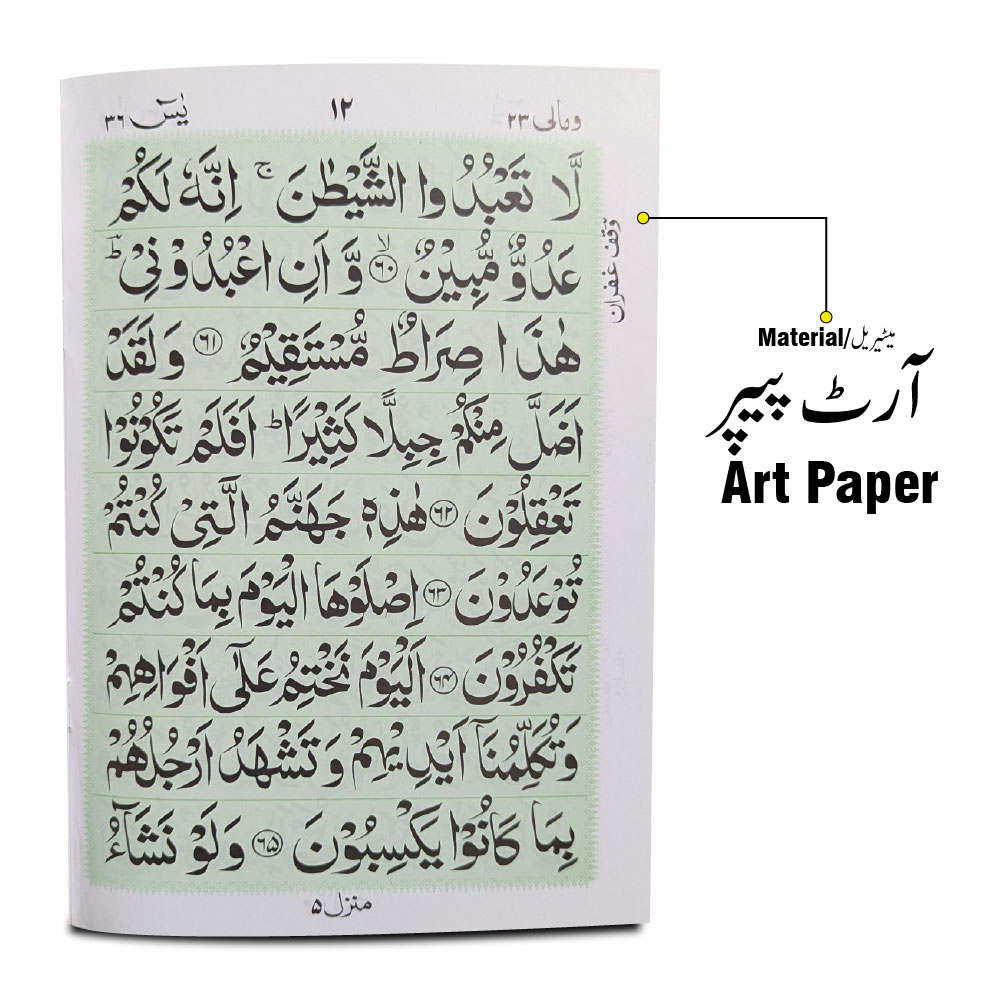 یٰسٓ ٣٦
١٢
ومالی ٢٣
لَّا تَعۡبُدُوا الشَّيۡطٰنَ ۚ اِنَّهٗ لَكُمۡ
عَدُوٌّ مُّبِيۡنٌ ۙ‏ ﴿٦٠﴾ وَّاَنِ اعۡبُدُوۡنِىۡ ؕ
هٰذَا صِرَاطٌ مُّسۡتَقِيۡمٌ ﴿٦١﴾ وَلَقَدۡ
اَضَلَّ مِنۡكُمۡ جِبِلًّا كَثِيۡرًا ؕ اَفَلَمۡ تَكُوۡنُوۡا
تَعۡقِلُوۡنَ ﴿٦٢﴾ هٰذِهٖ جَهَنَّمُ الَّتِىۡ كُنۡتُمۡ
تُوۡعَدُوۡنَ ﴿٦٣﴾ اِصۡلَوۡهَا الۡيَوۡمَ بِمَا كُنۡتُمۡ
تَكۡفُرُوۡنَ ﴿٦٤﴾ اَلۡيَوۡمَ نَخۡتِمُ عَلٰٓى اَفۡوَاهِهِمۡ
وَتُكَلِّمُنَاۤ اَيۡدِيۡهِمۡ وَتَشۡهَدُ اَرۡجُلُهُمۡ
بِمَا كَانُوۡا يَكۡسِبُوۡنَ ﴿٦٥﴾ وَلَوۡ نَشَآءُ
منزل ۵
وقف غفران
Material/میٹیریل
آرٹ پیپر
Art Paper